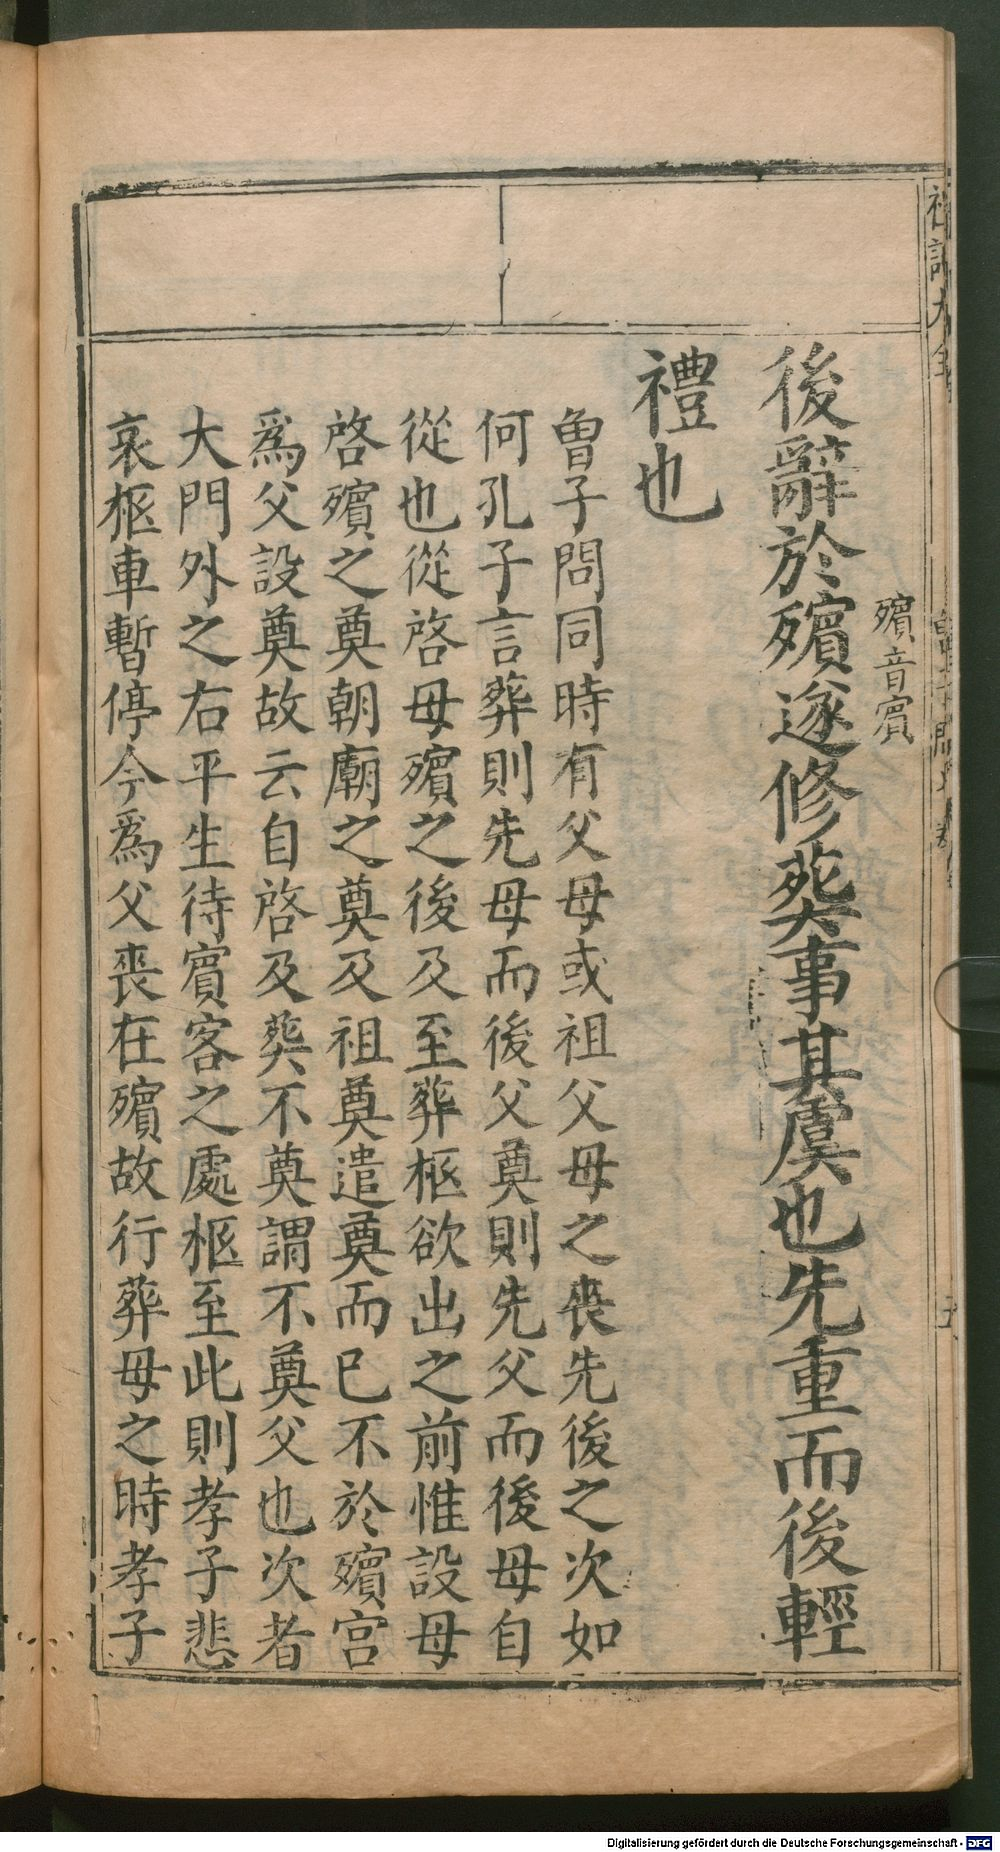 後辭於殯遂修葬事其虞也先重而後輕
殯音賓
禮也
曾子問同時有父母或祖父母之喪先後之次如
何孔子言葬則先母而後父奠則先父而後母自
從也從啓母殯之後及至葬柩欲出之前惟設母
啓殯之奠朝廟之奠及祖奠遣奠而已不於殯宮
爲父設奠故云自啓及葬不奠謂不奠父也次者
大門外之右平生待賓客之處柩至此則孝子悲
哀柩車暫停今爲父喪在殯故行葬母之時孝子
Digitalisierung gefördert durch die Deutsche Forschungsgemeinschaft - DFG